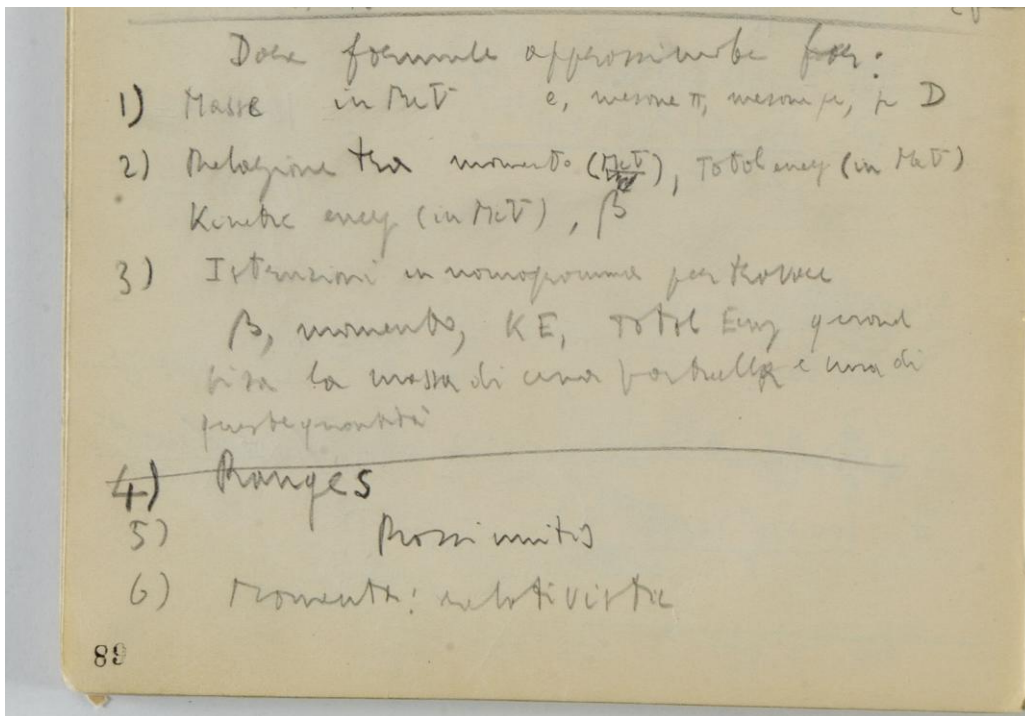 Dare formule approssimate per:
1) Masse in MeV e, mesone π, mesone μ, p D
2) Relazione tra momento (MeV), Total energy (in MeV)
Kinetic energy (in MeV), β
3) Istruzioni in nomogramma per trovare
β, momento, KE, Total Energ quand
la massa di una particella e una di
queste quantità
4) Ranges
5) Rossi units
6) Momenta: relativistic
89